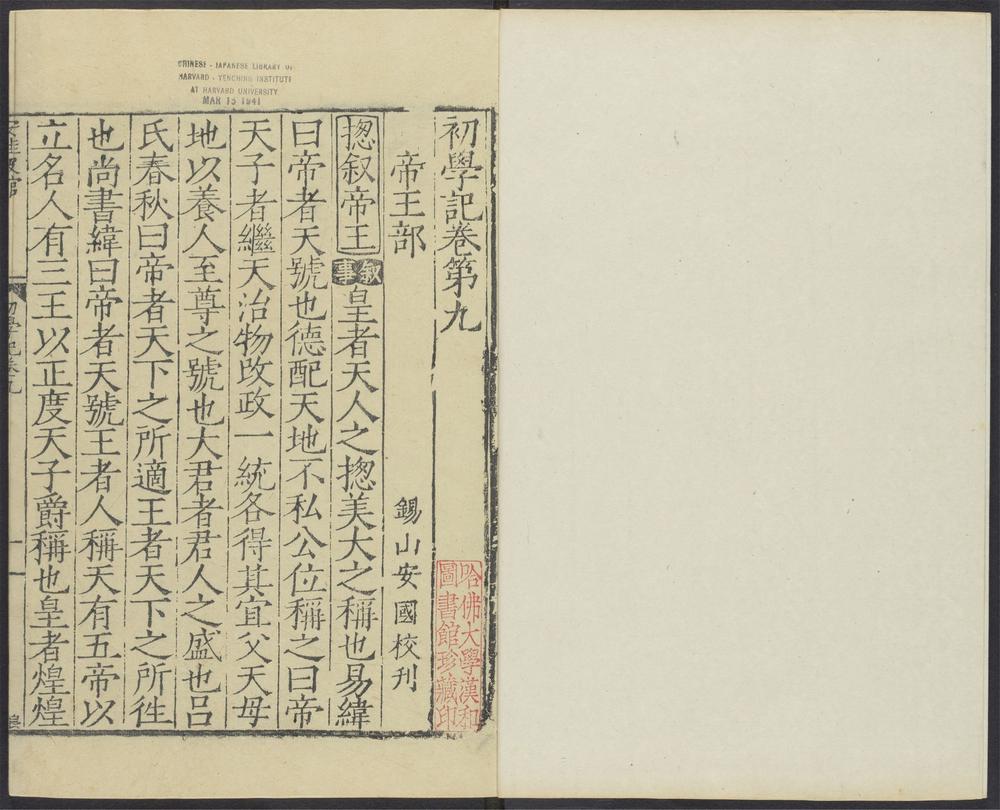 初學記卷第九
帝王部
錫山安國校刊
揔叙帝王 叙事 皇者天人之揔美大之稱也易緯
曰帝者天號也德配天地不私公位稱之曰帝
天子者繼天治物攺政一統各得其宜父天母
地以養人至尊之號也大君者君人之盛也吕
氏春秋曰帝者天下之所適王者天下之所徃
也尚書緯曰帝者天號王者人稱天有五帝以
立名人有三王以正度天子爵稱也皇者煌煌
初學記卷九
哈佛大學漢和
圖書館珍藏印
CHINESE - JAPANESE LIBRARY OF
HARVARD - YENCHING INSTITUTE
AT HARVARD UNIVERSITY
MAR 15 1941